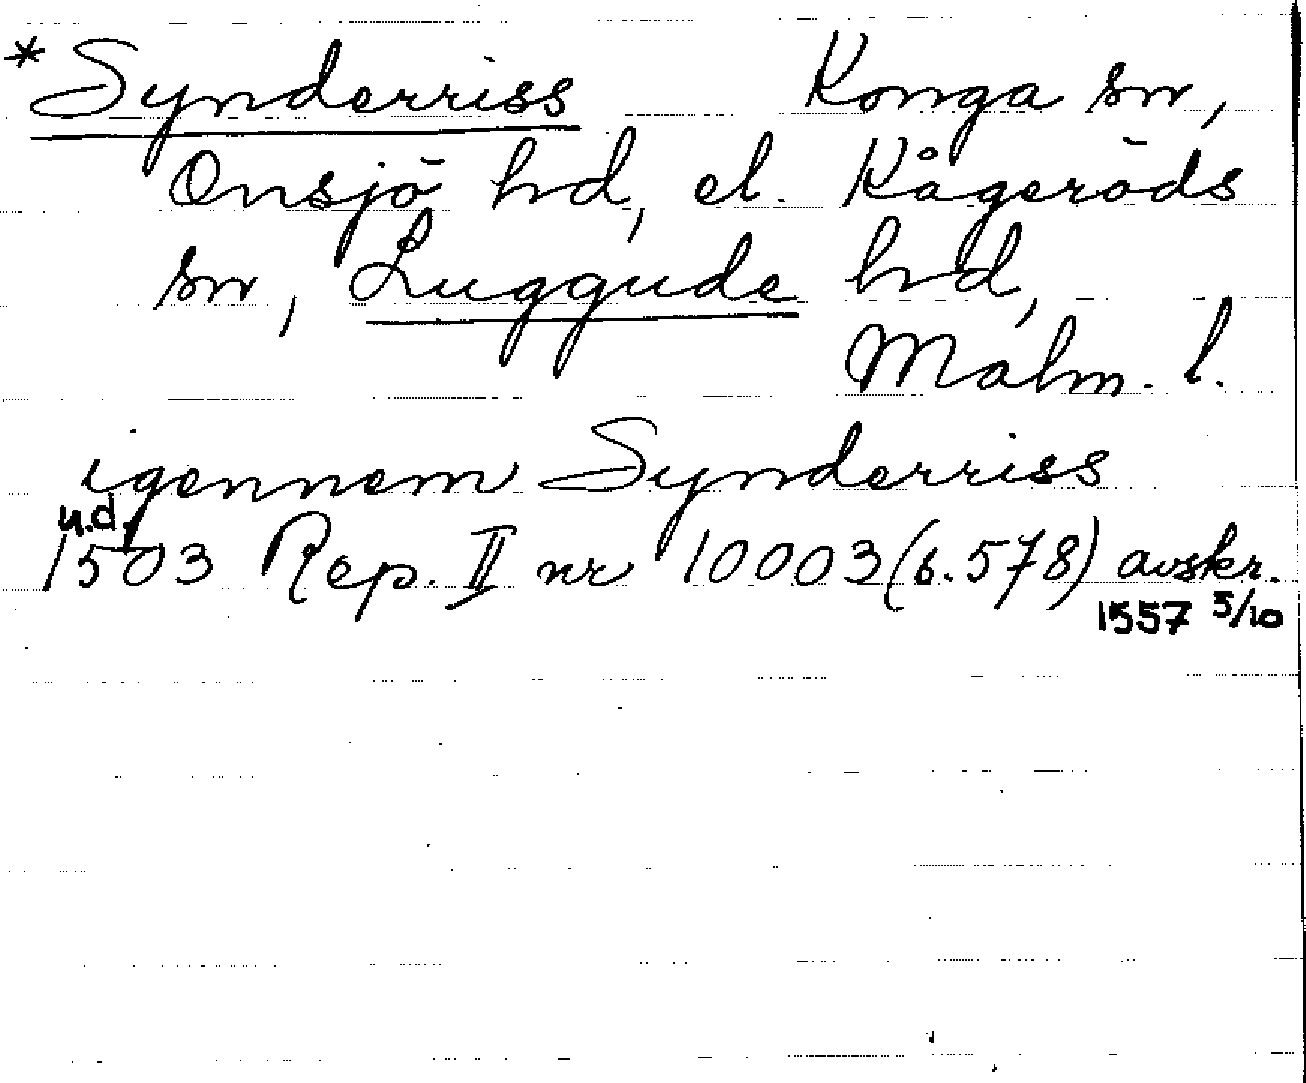 *Synderriss Konga sn,
Onsjō hd, el. Kågerōds
sn, Luggude hd,
Malm. l.
igennem Synderriss
u.d.
1503 Rep. II nr 10003 (6.578) avskr.
1557 5/10